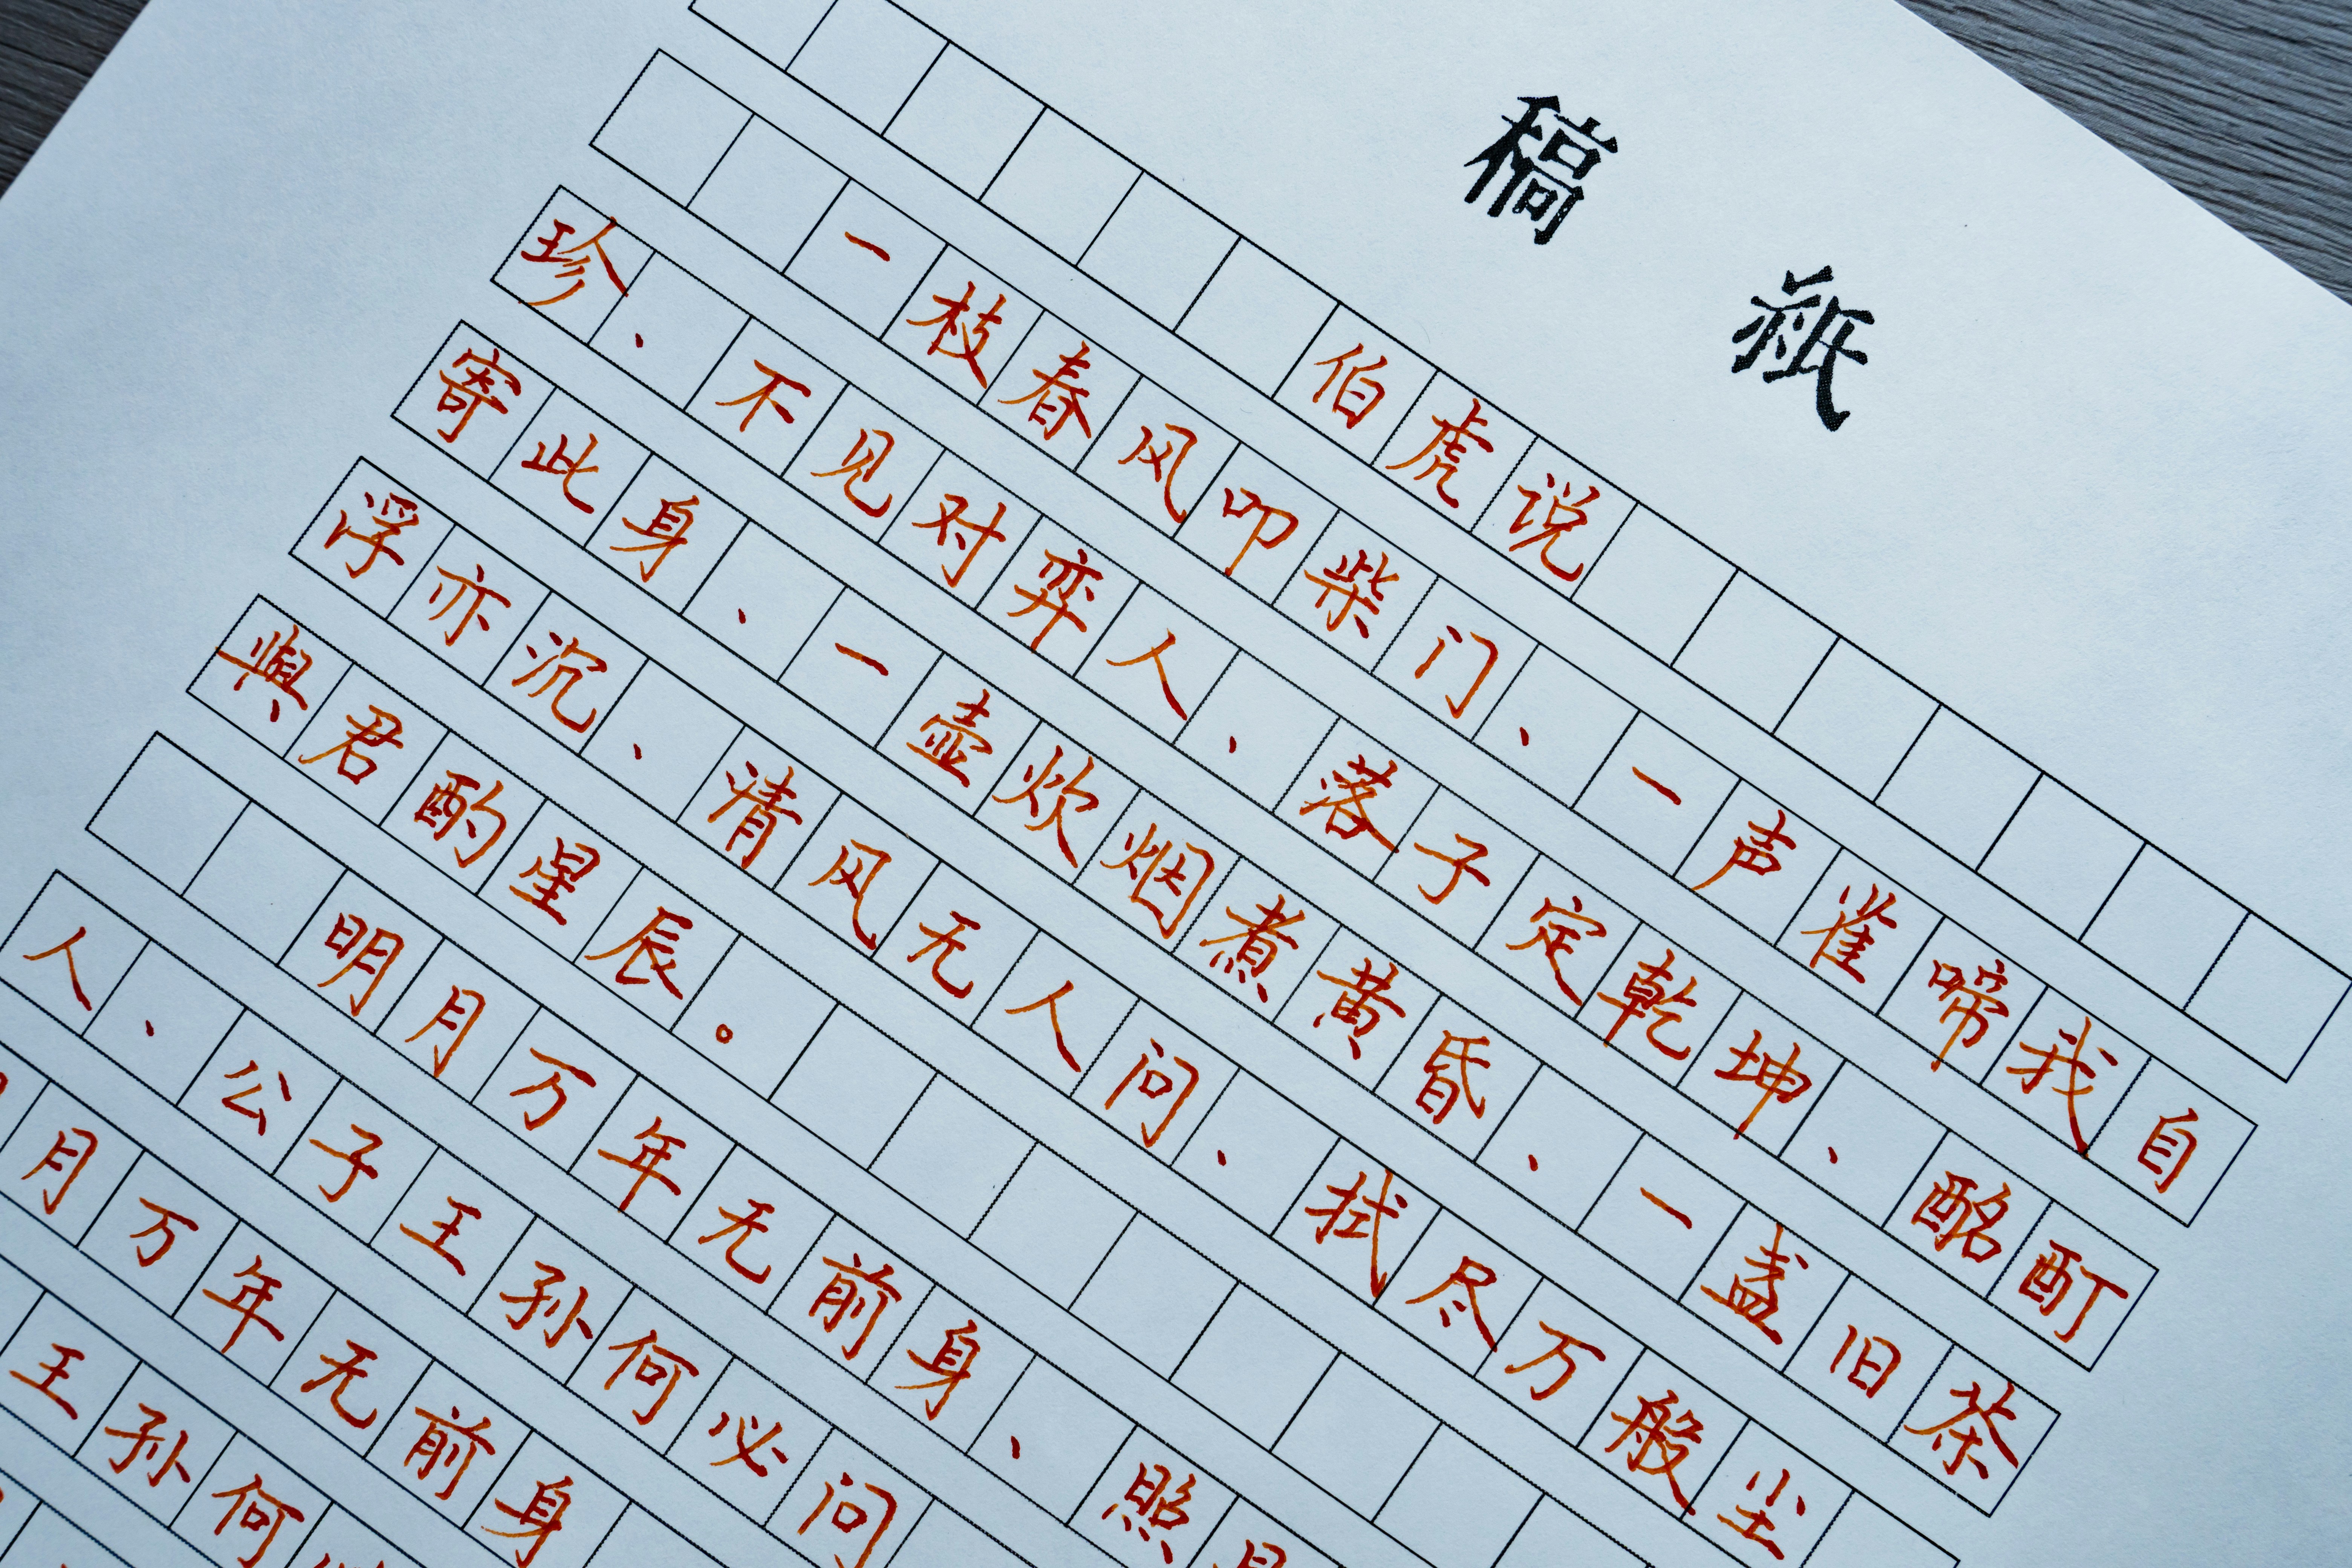 稿紙
伯虎说
一枝春风叩柴门、一声雀啼我自
珍、不见对弈人、落子定乾坤、酩酊
寄此身、一壶炊烟煮黄昏、一盏旧茶
浮亦沉、清风无人问、拭尽万般尘
與君酌星辰。
明月万年无前身、照
人、公子王孙何必问
月万年无前身
王孙何